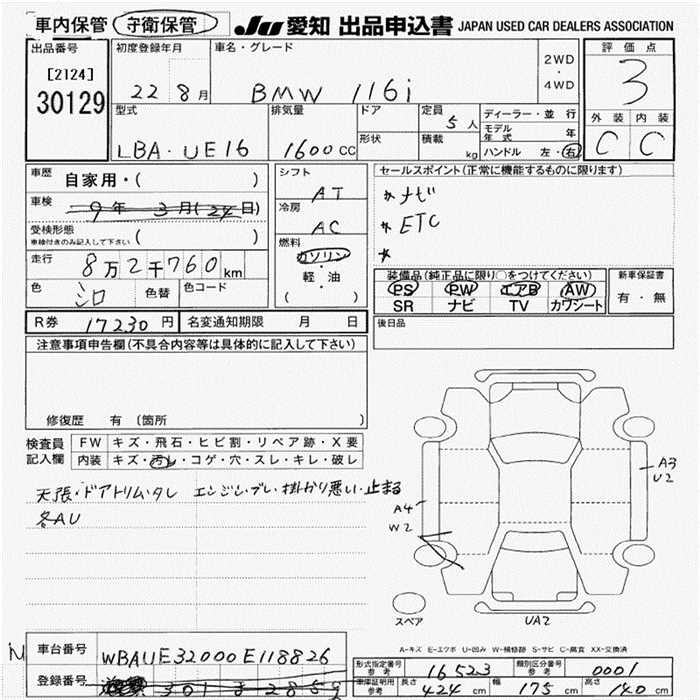 車内保管 守衛保管 JU 愛知 出品申込書 JAPAN USED CAR DEALERS ASSOCIATION
出品番号 初度登録年月 車名・グレード 2WD・4WD 評価点
[2124]
30129 22 8月 BMW 116i 3
型式 排気量 ドア 定員 5人 ディーラー・並行 外装 内装
形状 積載 kg モデル年式 年
LBA・UE16 1600cc ハンドル 左・右 C C
車歴 自家用・( ) シフト AT セールスポイント(正常に機能するものに限ります)
車検 9年 3月(24日) 冷房 AC *ナビ
受検形態 車検付きのみ記入して下さい ( ) *ETC
*
走行 8万2千760km 燃料 ガソリン 軽・油 ( ) 装備品(純正品に限り○をつけてください) 新車保証書
色 シロ 色替 色コード PS PW エアB AW 有・無
SR ナビ TV カワシート
R券 17230円 名変通知期限 月 日 後日品
注意事項申告欄(不具合内容等は具体的に記入して下さい)
修復歴 有 (箇所 )
検査員記入欄 FW キズ・飛石・ヒビ割・リペア跡・X要
内装 キズ・汚レ・コゲ・穴・スレ・キレ・破レ
天張・ドアトリム・タレ エンジン・ブレ・掛かり悪い・止まる
冬AU
A3
U2
A4
W2
スペア UA2
A-キズ E-エクボ U-凹み W-補修跡 S-サビ C-腐食 XX-交換済
車台番号 WBAUE32000E118826 形式指定番号 参考 16523 類別区分番号 参考 0001
登録番号 301 車庫証明用 参考 長さ 424cm 幅 175cm 高さ 140cm